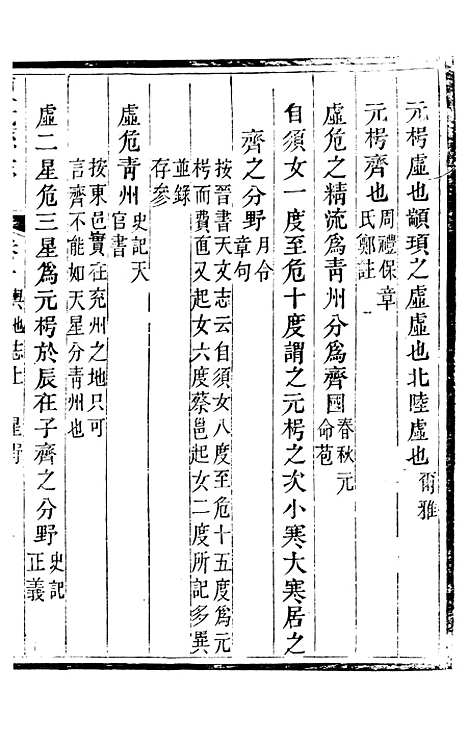 元枵虛也顓頊之虛虛也北陸虛也爾雅
元枵齊也周禮保章氏鄭註
虛危之精流爲青州分爲齊國春秋元命苞
自須女一度至危十度謂之元枵之次小寒大寒居之
齊之分野月令章句
按晉書天文志云自須女八度至危十五度爲元
枵而費直又起女六度蔡邕起女二度所記多異
並錄
存參
虛危青州史記天官書
按東邑實在兖州之地只可
言齊不能如天星分青州也
虛二星危三星爲元枵於辰在子齊之分野史記正義
輿地志上 星野